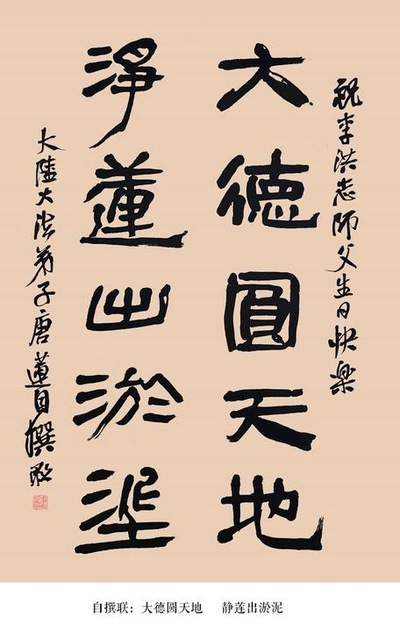 祝李洪志师父生日快樂
大德圓天地
淨蓮出淤埿
大陸大法弟子唐蓮自撰敬
自撰联：大德圆天地　静莲出淤泥